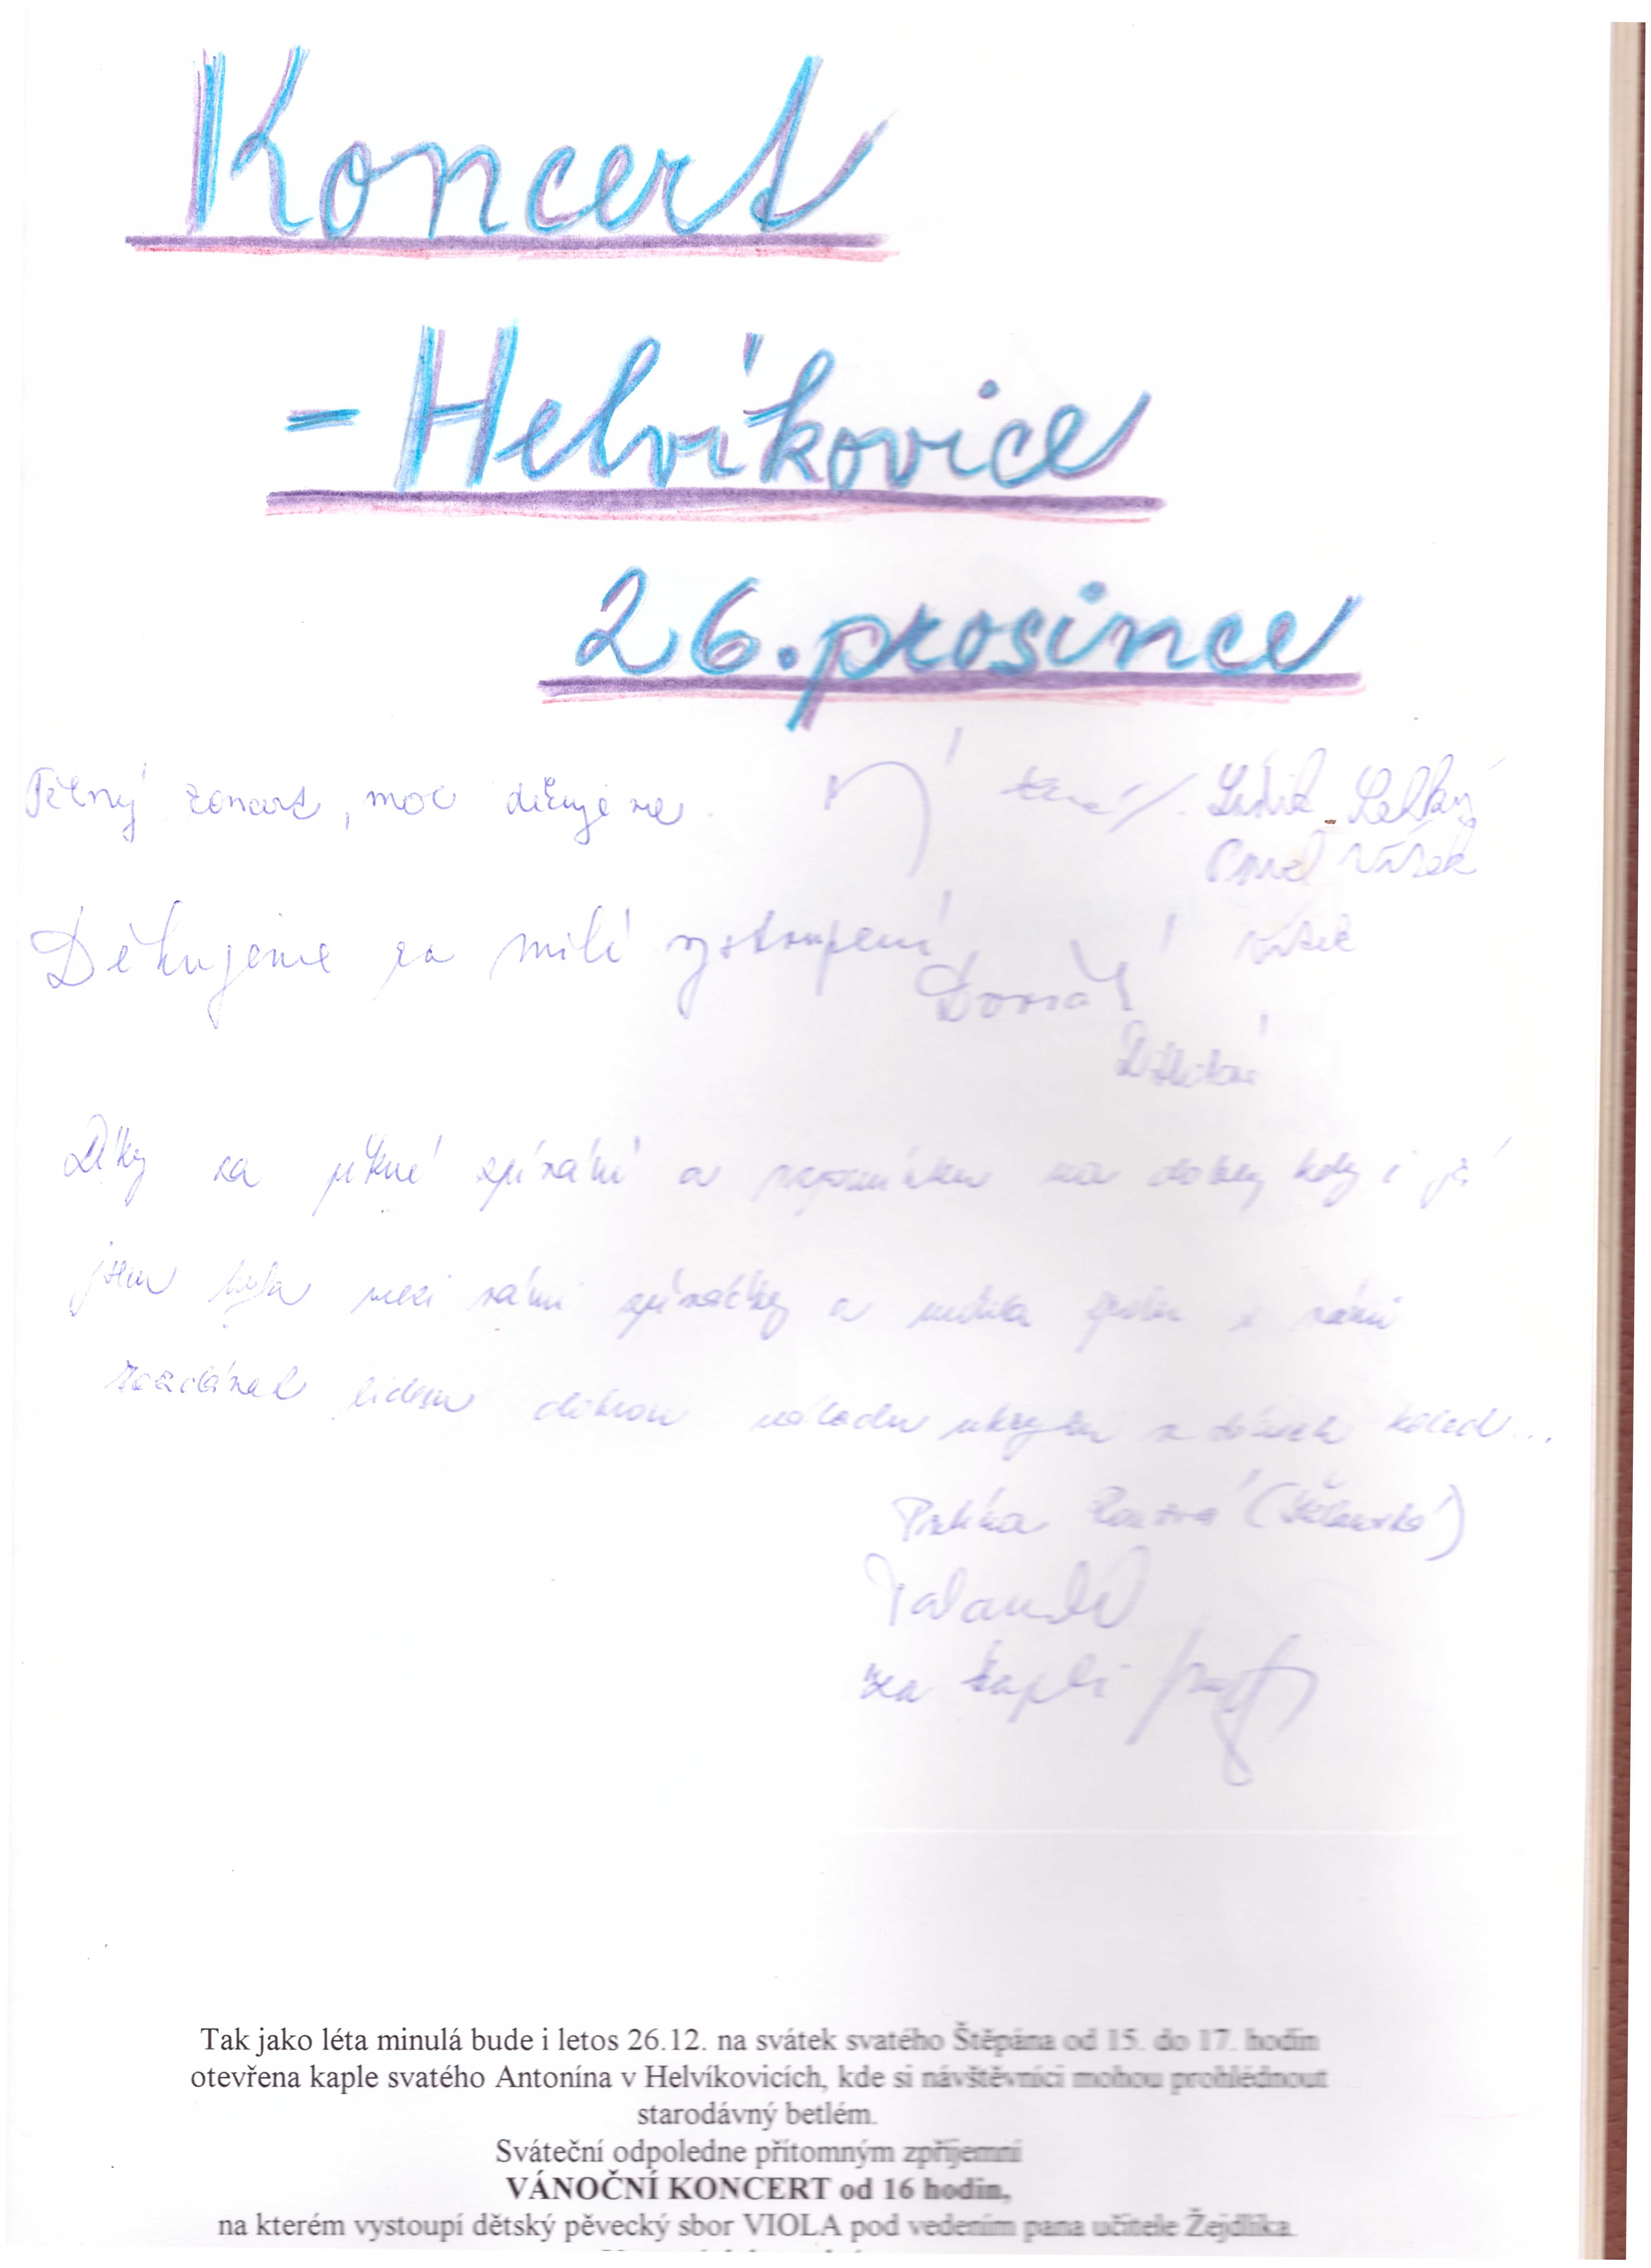 Koncert
- Helvíkovice
26. prosince
Pěkný koncert, moc děkujeme.
Děkujeme za milé vystoupení
Díky za pěkné zpívání a vzpomínku na doby kdy i já
jsem byla mezi vámi zpěváčky a mohla spolu s vámi
rozdávat lidem dobrou náladu ukrytou v tónech koled...
za kapli
Tak jako léta minulá bude i letos 26.12. na svátek svatého Štěpána od 15. do 17. hodin
otevřena kaple svatého Antonína v Helvíkovicích, kde si návštěvníci mohou prohlédnout
starodávný betlém.
Sváteční odpoledne přítomným zpříjemní
VÁNOČNÍ KONCERT od 16 hodin,
na kterém vystoupí dětský pěvecký sbor VIOLA pod vedením pana učitele Žejdlíka.